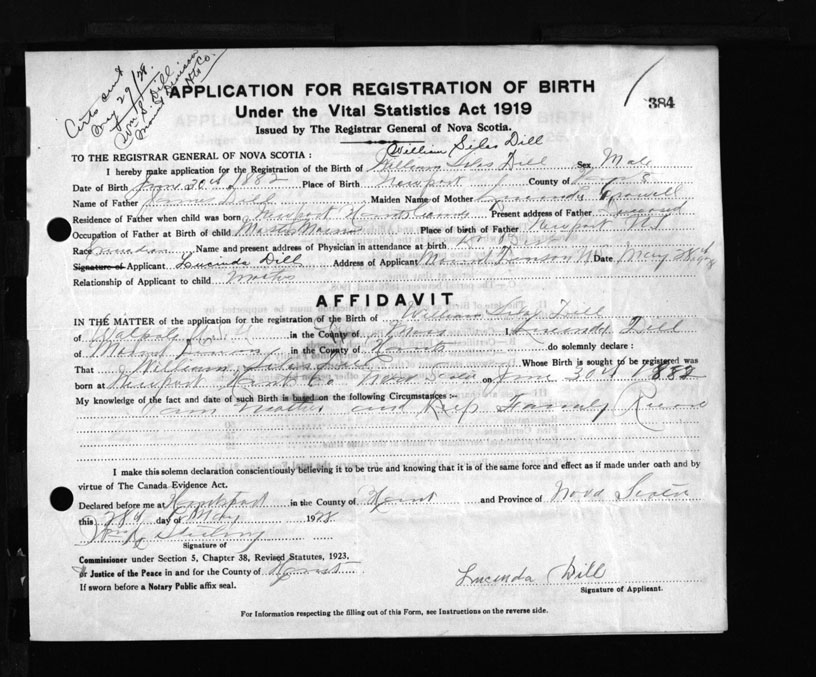 APPLICATION FOR REGISTRATION OF BIRTH
384
Under the Vital Statistics Act 1919
Issued by The Registrar General of Nova Scotia.
William Silas Dill
TO THE REGISTRAR GENERAL OF NOVA SCOTIA:
I hereby make application for the Registration of the Birth of William Silas Dill Sex Male
Date of Birth June 30th 1882 Place of Birth Newport County of
Name of Father Dill Maiden Name of Mother
Residence of Father when child was born Newport Hants County Present address of Father Deceased
Occupation of Father at Birth of child Place of birth of Father Newport N.S.
Race Name and present address of Physician in attendance at birth
Signature of Applicant Lucinda Dill Address of Applicant Date May 28th
Relationship of Applicant to child Mother
AFFIDAVIT
IN THE MATTER of the application for the registration of the Birth of William Silas Dill
of in the County of I Lucinda Dill
of in the County of Hants do solemnly declare:
That William Silas Dill Whose Birth is sought to be registered was
born at Newport Hants Co Nova Scotia on June 30th 1882
My knowledge of the fact and date of such Birth is based on the following Circumstances:-
I am Mother and Keep Family
I make this solemn declaration conscientiously believing it to be true and knowing that it is of the same force and effect as if made under oath and by
virtue of The Canada Evidence Act.
Declared before me at Hantsport in the County of Hants and Province of Nova Scotia
this 28th day of May 1928
Signature of
Commissioner under Section 5, Chapter 38, Revised Statutes, 1923.
or Justice of the Peace in and for the County of Hants
If sworn before a Notary Public affix seal.
Lucinda Dill
Signature of Applicant.
For Information respecting the filling out of this Form, see Instructions on the reverse side.